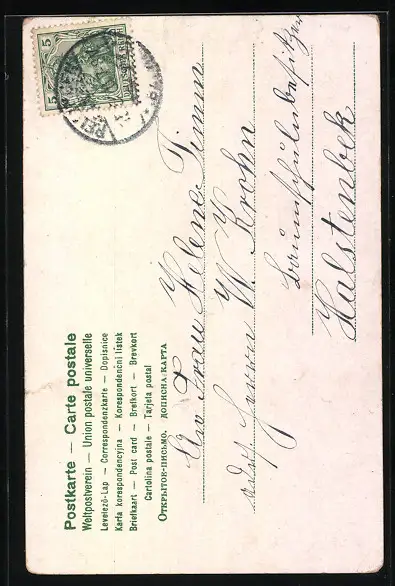 Postkarte — Carte postale
Weltpostverein — Union postale universelle
Levelező-Lap — Correspondenzkarte — Dopisnice
Karta korespondencyjna — Korespondenční lístek
Briefkaart — Post card — Brefkort — Brevkort
Cartolina postale — Tarjeta postal
Открытое-письмо. Дописна карта
5 5
An Frau Helene Timm
adr. Herrn W. Krohn
Baumschulenbesitzer
Halstenbek